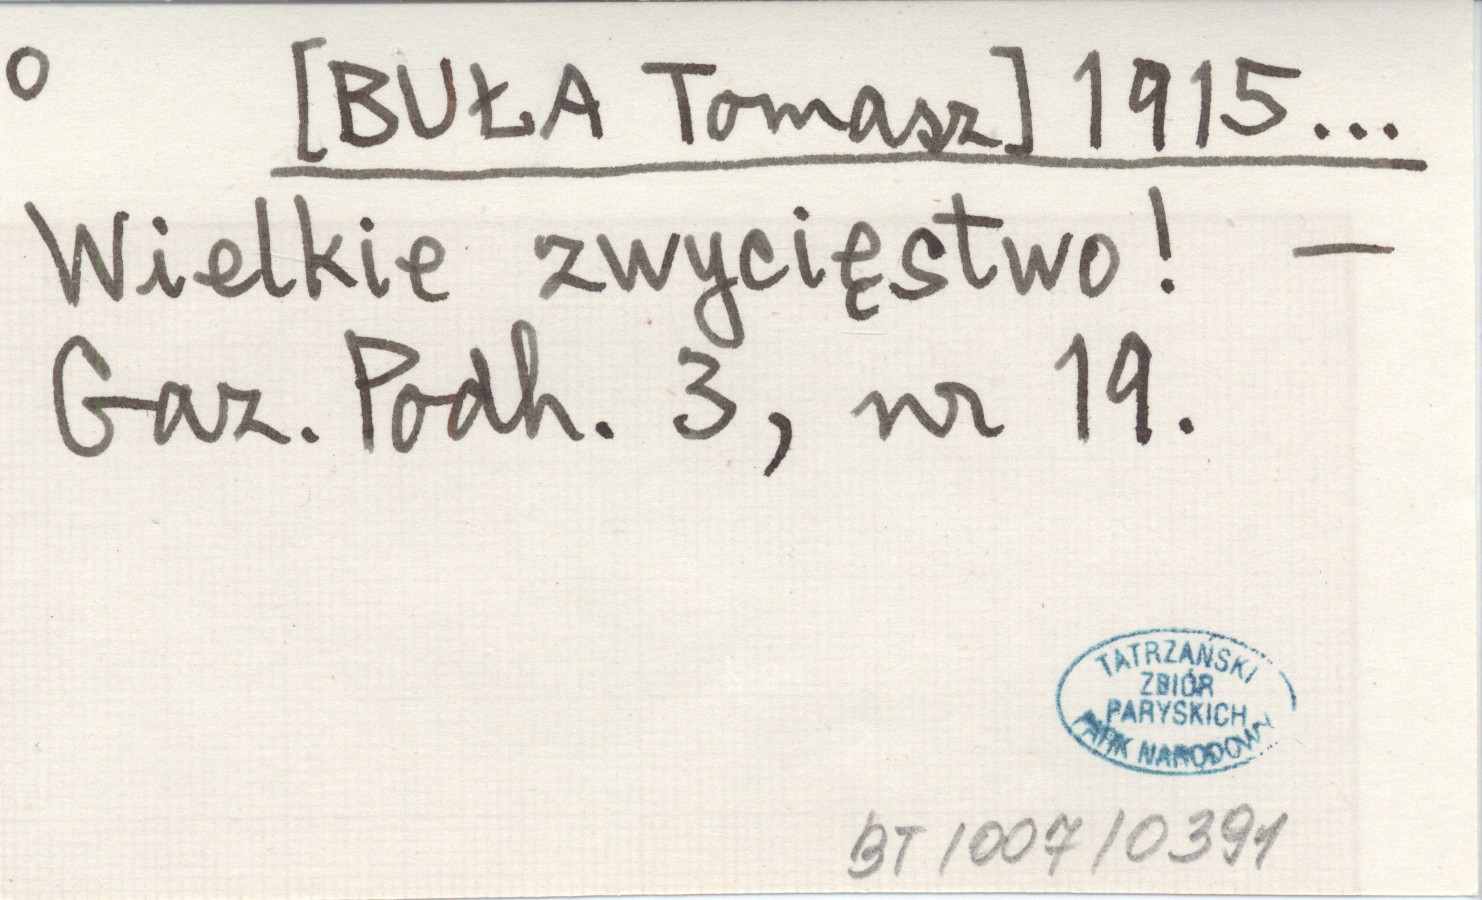 o [BUŁA Tomasz] 1915...
Wielkie zwycięstwo! —
Gaz. Podh. 3, nr 19.
TATRZAŃSKI
ZBIÓR
PARYSKICH
PARK NARODOWY
BT/007/0391